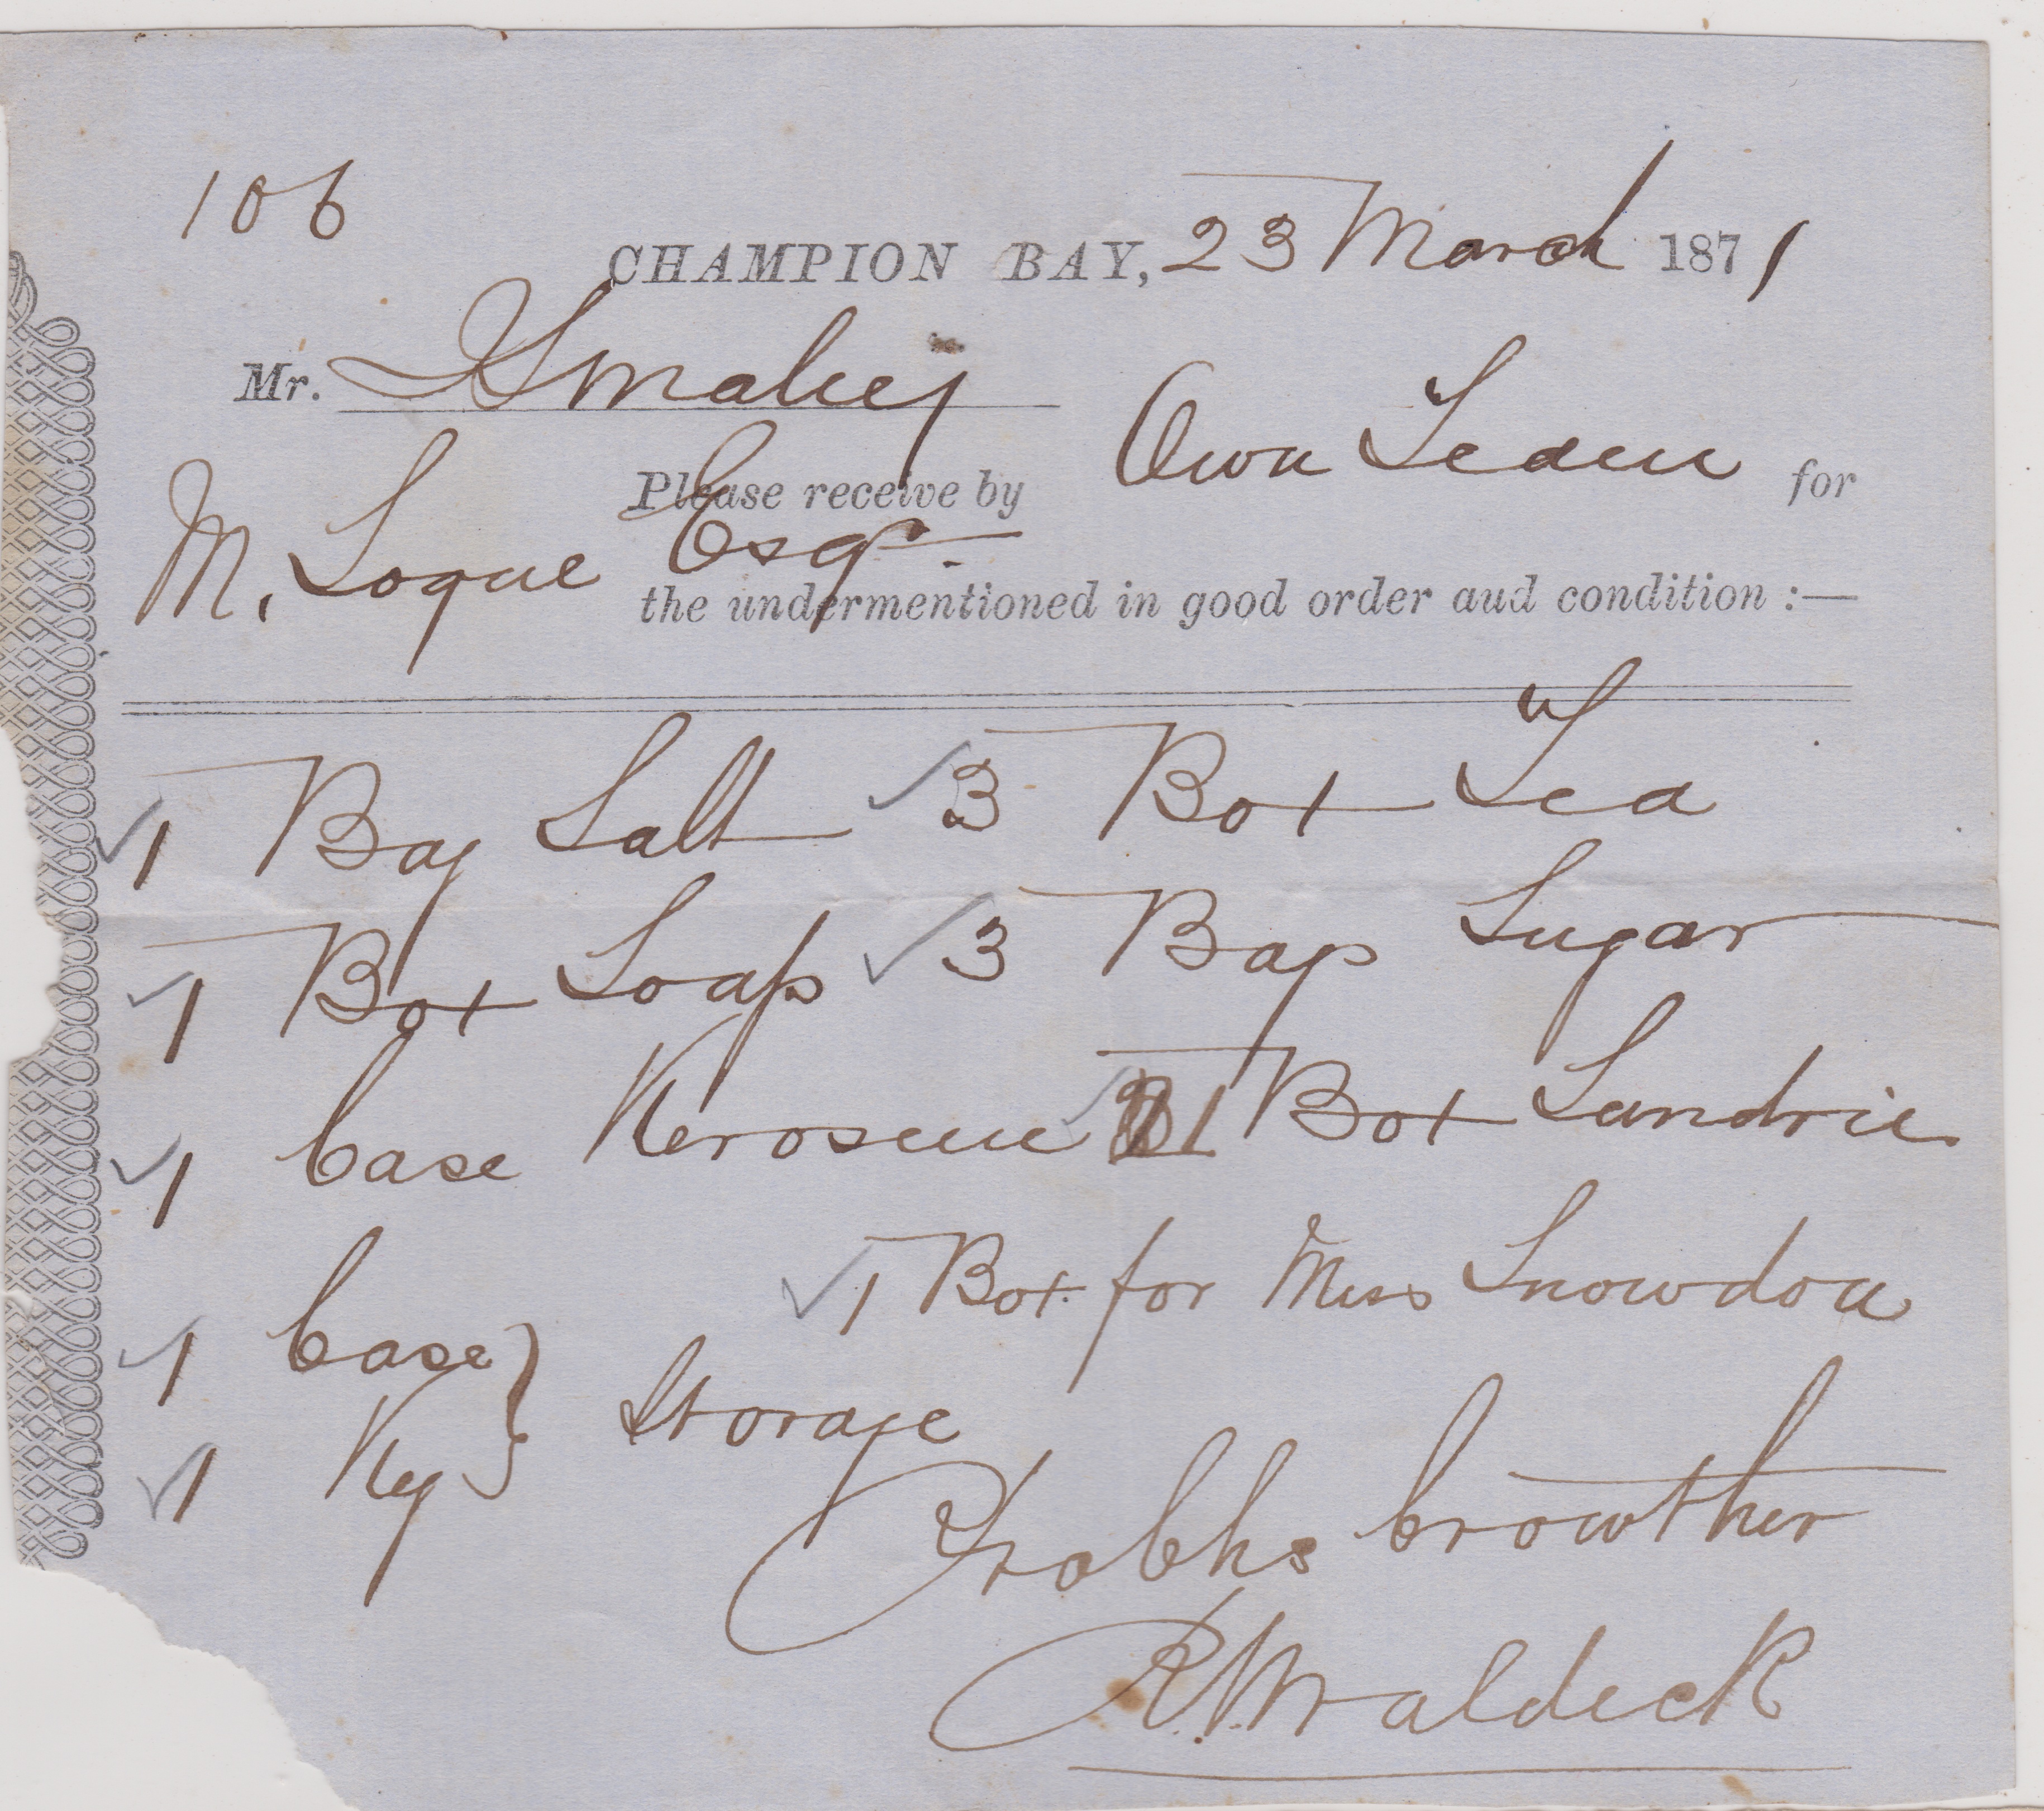 106
CHAMPION BAY, 23 March 1871
Mr. Smaley
Please receive by Own Team for
M. Logue Esqr.
the undermentioned in good order aud condition :—
1 Bag Salt 3 Box Tea
1 Box Soap 3 Bags Sugar
1 Case Kerosene 1 Box Sundries
1 Box for Miss Snowdon
1 Case
1 Keg } Storage
Crowther
Waldeck